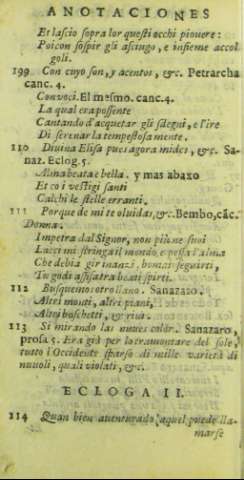 ANOTACIONES
Et lascio sopra lor questi occhi piouere:
Poi con sospir gli asciugo, e insieme accol
goli.
199 Con cuyo son, y acentos, &c. Petrarcha
canc. 4.
Con voci. El mesmo. canc. 4.
La qual era possente
Cantando d'acquetar gli sdegni, e l'ire
Di serenar la tempestosa mente.
110 Diuina Elisa pues agora mides, &c. Sa-
naz. Eclog. 5.
Alma beata e bella. y mas abaxo
Et co i vestigi santi
Calchi le stelle erranti.
111 Porque de mi te oluidas, &c. Bembo, cāc.
Donna.
Impetra dal Signor, non piu ne suoi
Lacci mi stringa il mondo, e possa l'alma
Che debia gir inanzi, homai seguirti,
Tu godi assisa tra beati spirti.
112 Busquemos otro llano. Sanazaro.
Altri monti, altri piani,
Altri boschetti, & riui.
113 Si mirando las nuues color. Sanazaro,
prosa 5. Era già per lo tramontare del sole,
tutto l'Occidente sparso di mille varietà di
nuuoli, quali violati, &c.
ECLOGA II.
114 Quan bien auenturado, aquel puede lla-
marse